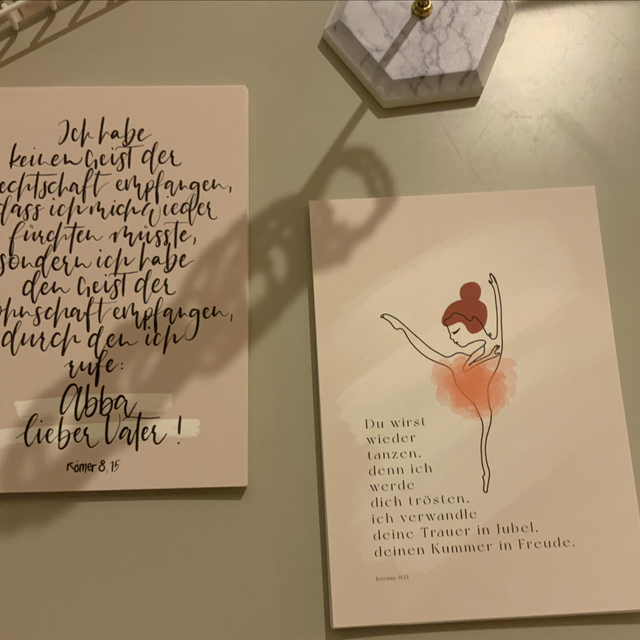 Ich habe
keinen Geist der
echtschaft empfangen,
dass ich mich wieder
fürchten müsste,
sondern ich habe
den Geist der
ohnschaft empfangen,
durch den ich
rufe:
Abba
lieber Vater!
Römer 8,15
Du wirst
wieder
tanzen,
denn ich
werde
dich trösten,
ich verwandle
deine Trauer in Jubel,
deinen Kummer in Freude.